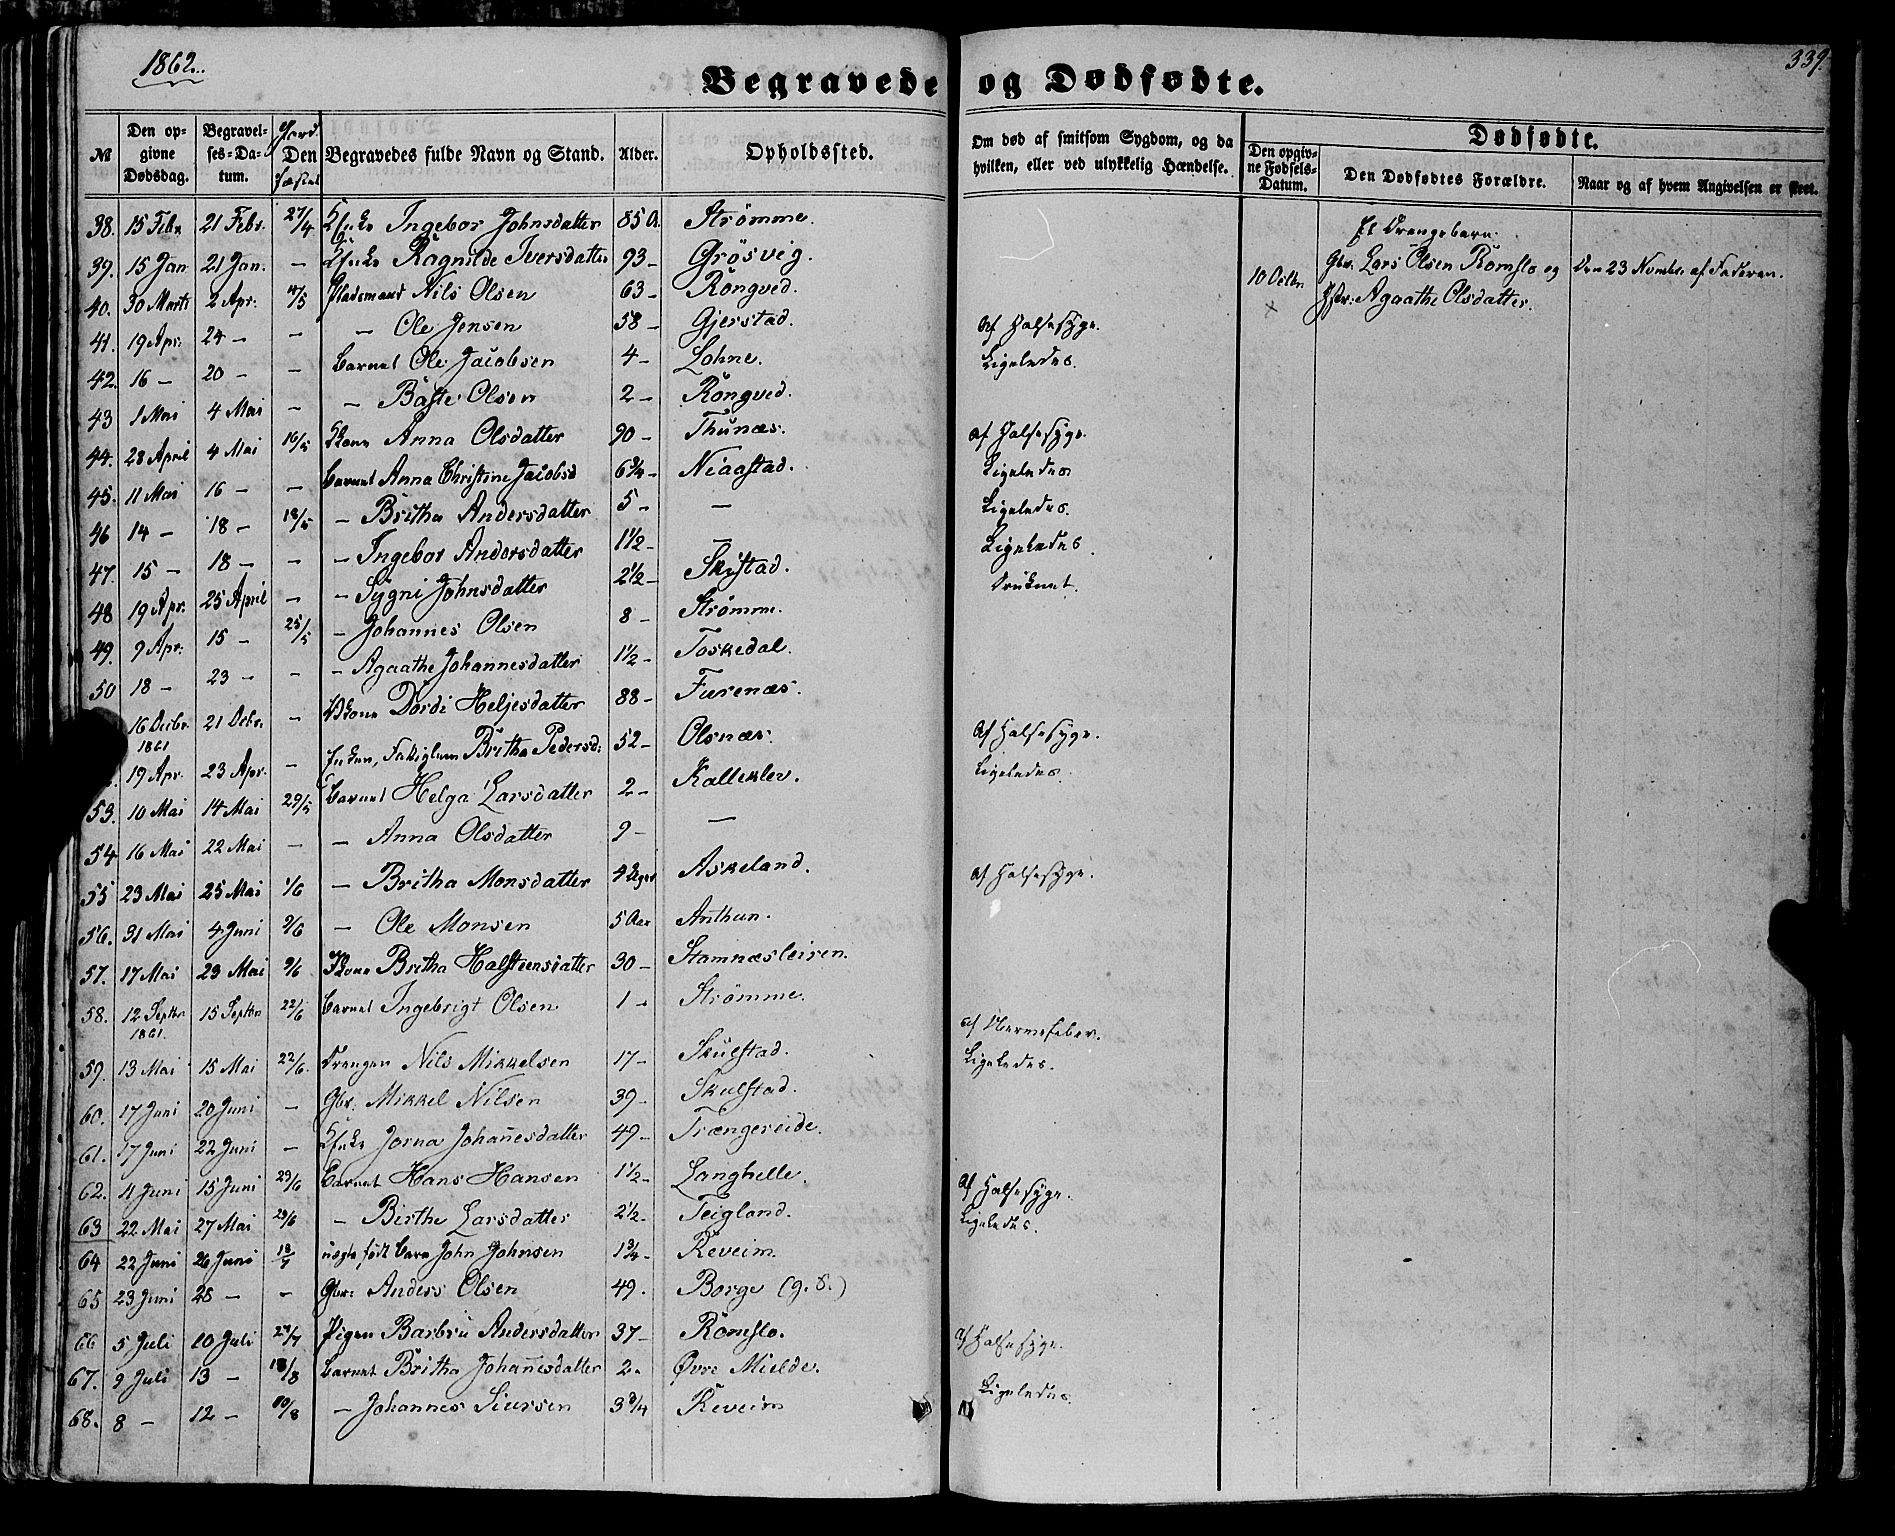 1862.
339.
Begravede og Dødfødte.
№
Den opgivne Dødsdag.
Begravelses-Datum.
Jord
Den
fæstet
Begravedes fulde Navn og Stand.
Alder.
Opholdssted.
Om død af smitsom Sygdom, og da hvilken, eller ved ulykkelig Hændelse.
Dødfødte.
Den opgivne Fødsels-Datum.
Den Dødfødtes Forældre.
Naar og af hvem Angivelsen er skeet.
38. 15 Febr 21 Febr. 27/4 Ingebor Johnsdatter 85 A. Strømme.
39. 15 Jan 21 Jan. — Ragnilde Iversdatter 93 — Grøsvig.
40. 30 Marts 2 Apr. 4/5 Pladsmand Nils Olsen 63 — Röngved.
41. 19 Apr. 24 — — — Ole Jensen 58 — Gjerstad. Af Halsesyge.
42. 16 — 20 — — Barnet Ole Jacobsen 4 — Lohne. Ligeledes.
43 1 Mai 4 Mai — — Baste Olsen 2 — Röngved.
44. 28 April 4 Mai 16/5 Kone Anna Olsdatter 90 — Thunæs. Af Halsesyge.
45. 11 Mai 16 — — Barnet Anna Christine Jacobsd 6 3/4 — Niaastad. Ligeledes
46 14 — 18 — 18/5 — Britha Andersdatter 5 — — Ligeledes.
47. 15 — 18 — — — Ingebor Andersdatter 1 1/2 — — Ligeledes.
48 19 Apr. 25 April — — Sygni Johnsdatter 2 1/2 — Druknet.
49. 9 Apr. 15 — 25/5 — Johannes Olsen 8 — Strømme.
50 18 — 23 — — — Agaathe Johannesdatter 1 1/2 — Toskedal.
16 Decbr. 1861 21 Decbr. — Kone Dordi Heljesdatter 88 — Furenæs.
19 Apr. 23 Apr. — Britha Pedersd: 52 — Olsnæs. Af Halsesyge.
53. 10 Mai 14 Mai 29/5 Barnet Helga Larsdatter 2 — Kalleklev. Ligeledes.
54 16 Mai 22 Mai — — Anna Olsdatter 9 — —
55 23 Mai 25 Mai 1/6 — Britha Monsdatter 4 Uger Askeland. Af Halsesyge.
56. 31 Mai 4 Juni 9/6 — Ole Monsen 5 Aar Anthun.
57. 17 Mai 23 Mai 9/6 Kone Britha Halsteensdatter 30 — Stamnæsleiren.
58. 12 Septbr 1861. 15 Septbr 22/6 Barnet Ingebrigt Olsen 1 — Strømme.
59. 13 Mai 15 Mai 22/6. Drengen Nils Mikkelsen 17 — Skulstad. af Nervefeber.
60. 17 Juni 20 Juni — Gbr. Mikkel Nilsen 39 — Skulstad. Ligeledes.
61. 17 Juni 22 Juni — Jorna Johañesdatter 49 — Trængereide.
62. 11 Juni 15 Juni 29/6 Barnet Hans Hansen 1 1/2 — Langhelle. Af Halsesyge.
63 22 Mai 27 Mai 29/6 — Birthe Larsdatter 2 1/2 — Teigland. Ligeledes.
64 22 Juni 26 Juni 13/7 uægte født Barn John Johnsen 1 3/4 — Reveim.
65 23 Juni 28 — — Gbr: Anders Olsen 49. Borge (g. S.)
66 5 Juli 10 Juli 27/7 Pigen Barbru Andersdatter 37 — Romslo. af Halsesyge.
67. 9 Juli 13 — 18/8 Barnet Britha Johañesdatter 2 — Øvre Mielde.
68. 8 — 12 — 10/8 — Johannes Siursen 3 3/4 Reveim Ligeledes.
Et Drengebarn.
10 Octbr Gbr. Lars Olsen Romslo og Den 23 Novbr. af Faderen.
× Hstr: Agaathe Olsdatter.